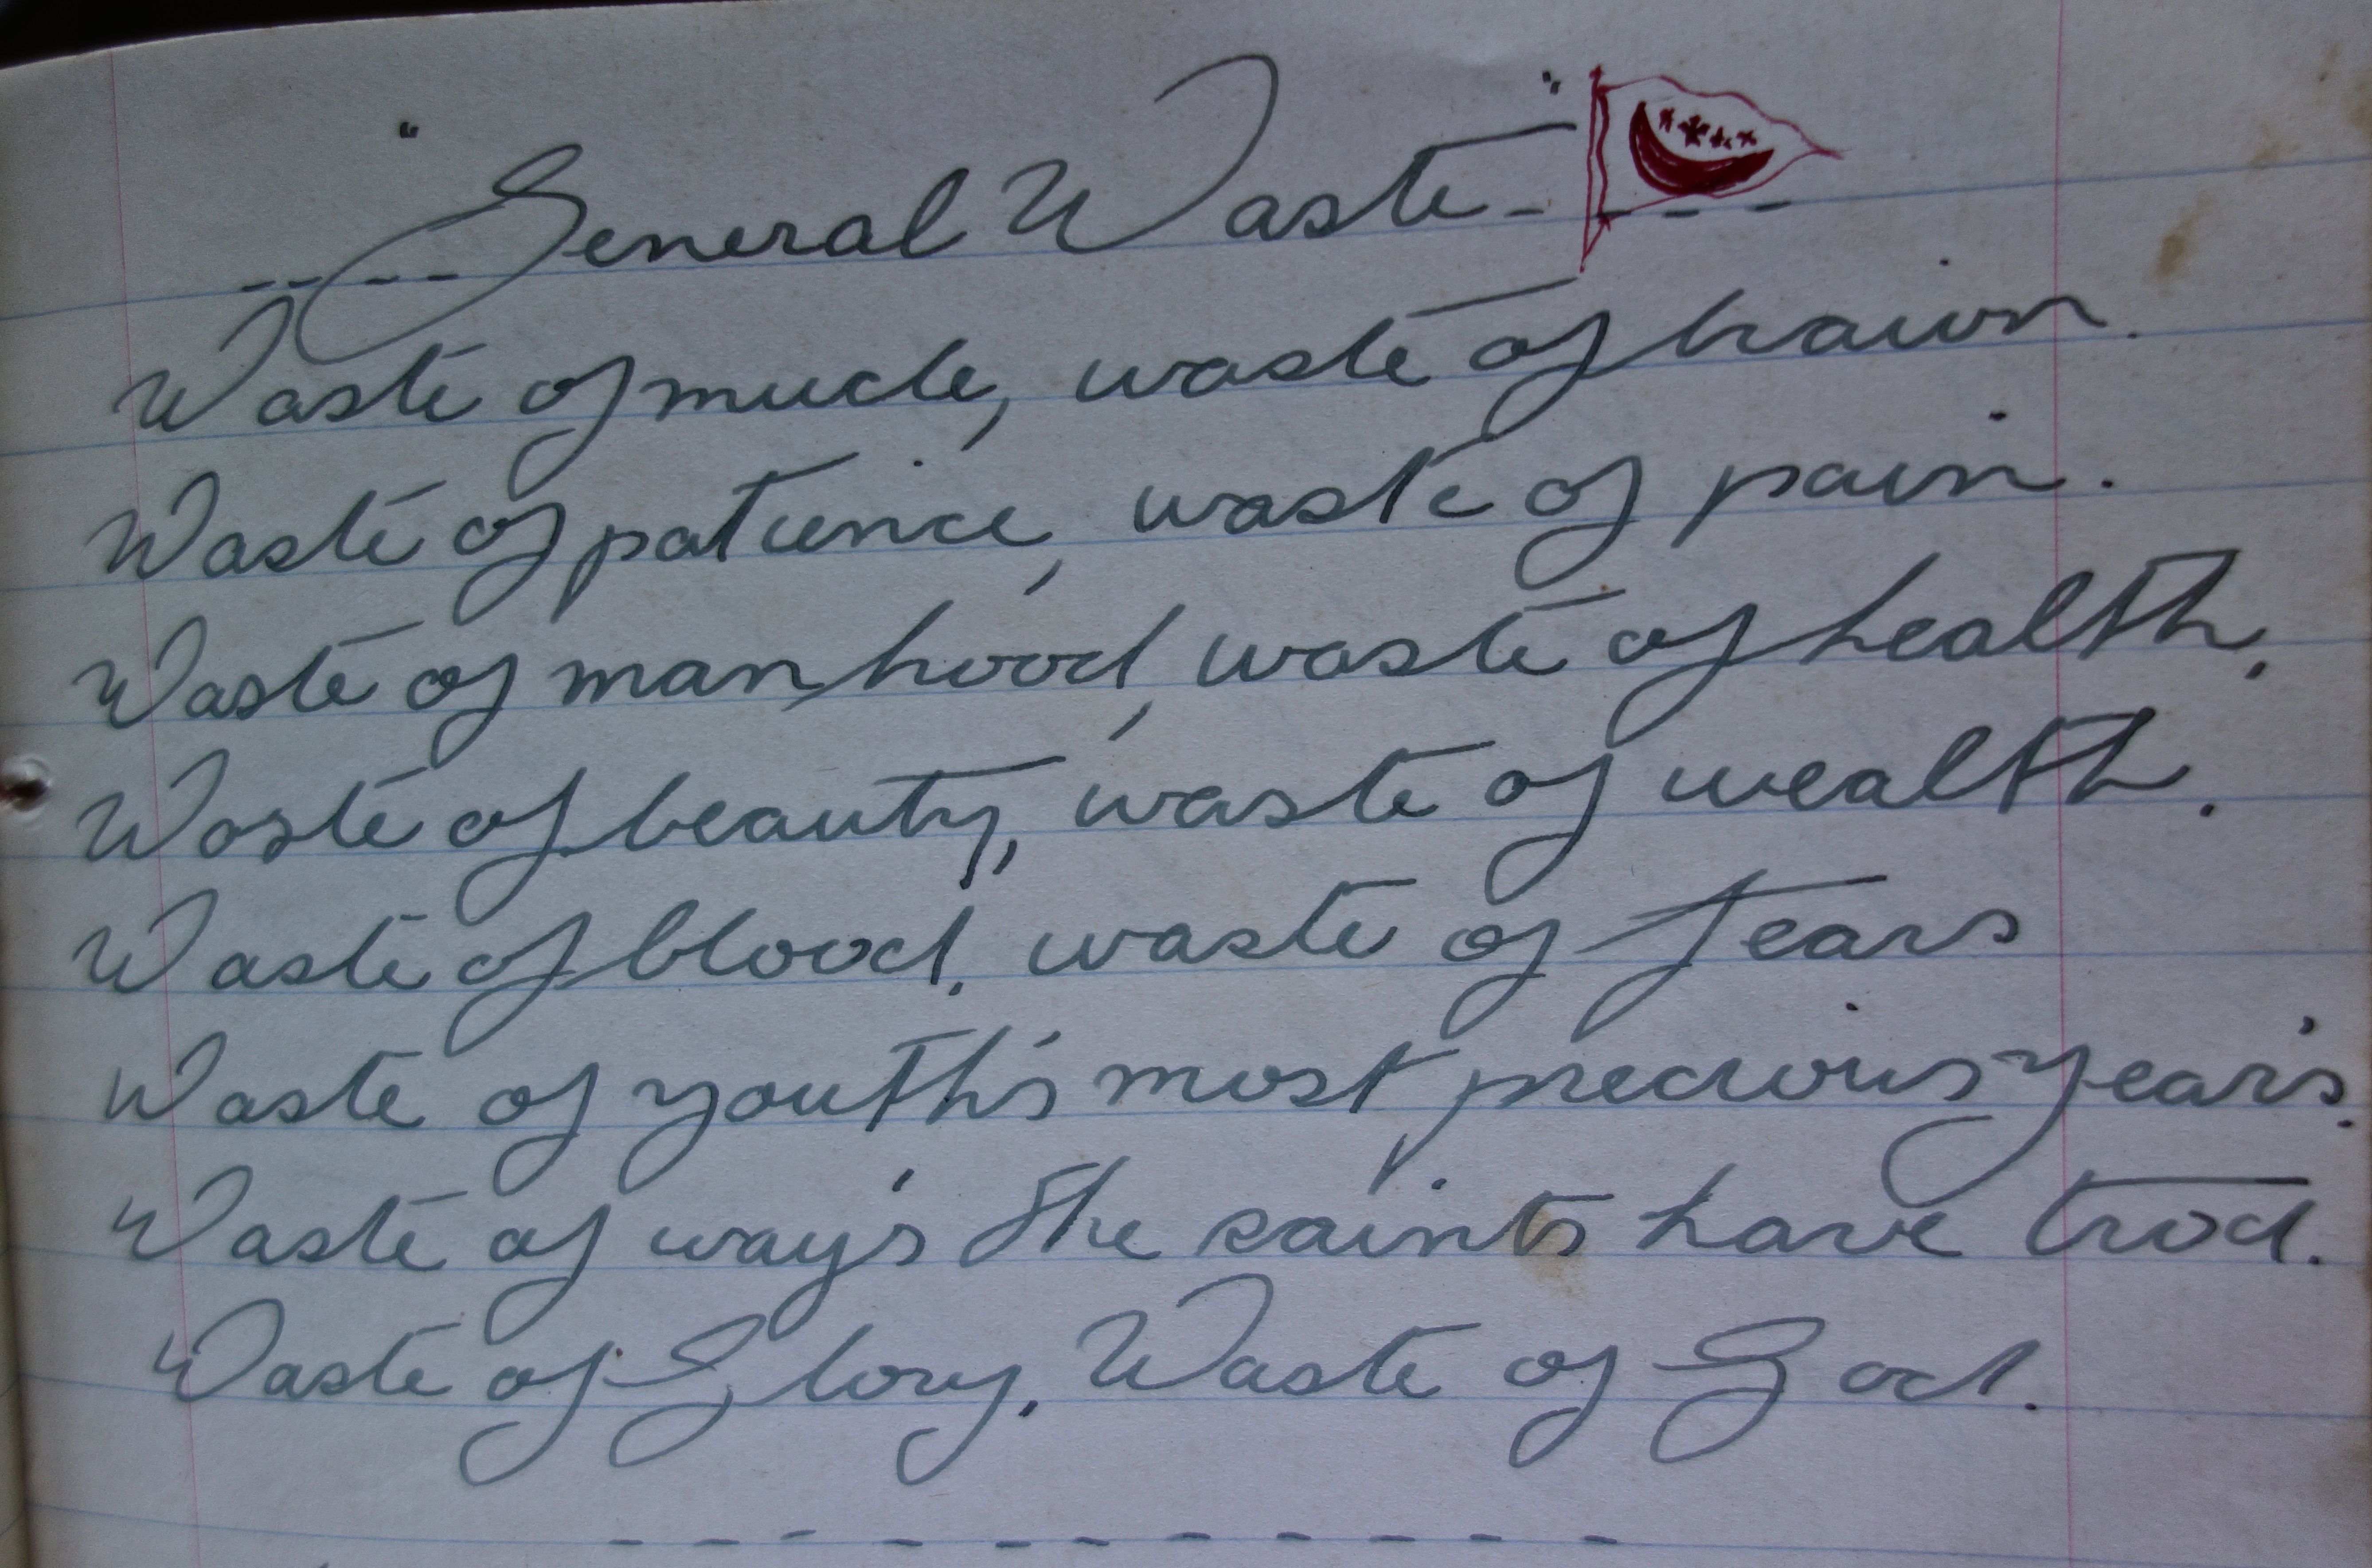 "General Waste"
Waste of mucle, waste of brawn.
Waste of patience, waste of pain.
Waste of manhood, waste of health.
Waste of beauty, waste of wealth.
Waste of blood, waste of Tears
Waste of youth's most precious year's.
Waste of way's The saints have trod.
Waste of Glory. Waste of God.